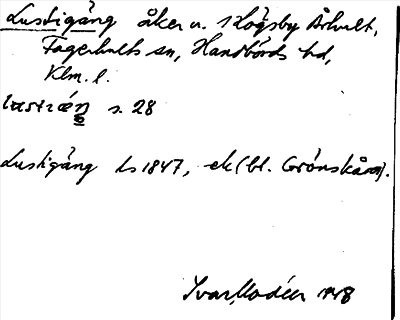 Lustigång åker u. Skögsby Århult,
Fagerhults sn, Handbörds hd,
Klm. l.
s. 28
Lustigång ls 1847, ek (bl. Grönskåra).
Ivar Modéer 1948